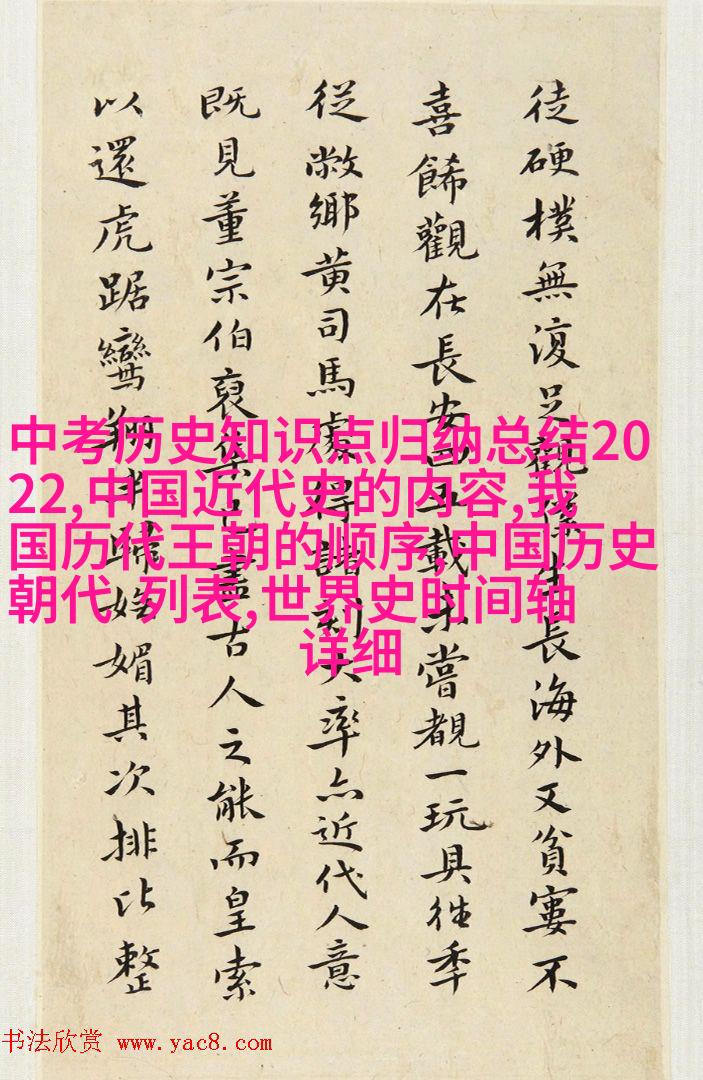 徒硬樸無復足觀僕生長海外又貧寠不
喜餙觀在長安四五載未嘗覩一玩具往年
從敝鄉黄司馬處得諸刻大率亦近代人意
既見董宗伯裒集
古人之能而皇索
以還虎踞鸞翔
媚其次排比整
中考历史知识点归纳总结20
22,中国近代史的内容,我
国历代王朝的顺序,中国历史
朝代 列表,世界史时间轴
详细
书法欣赏 www.yac8.com